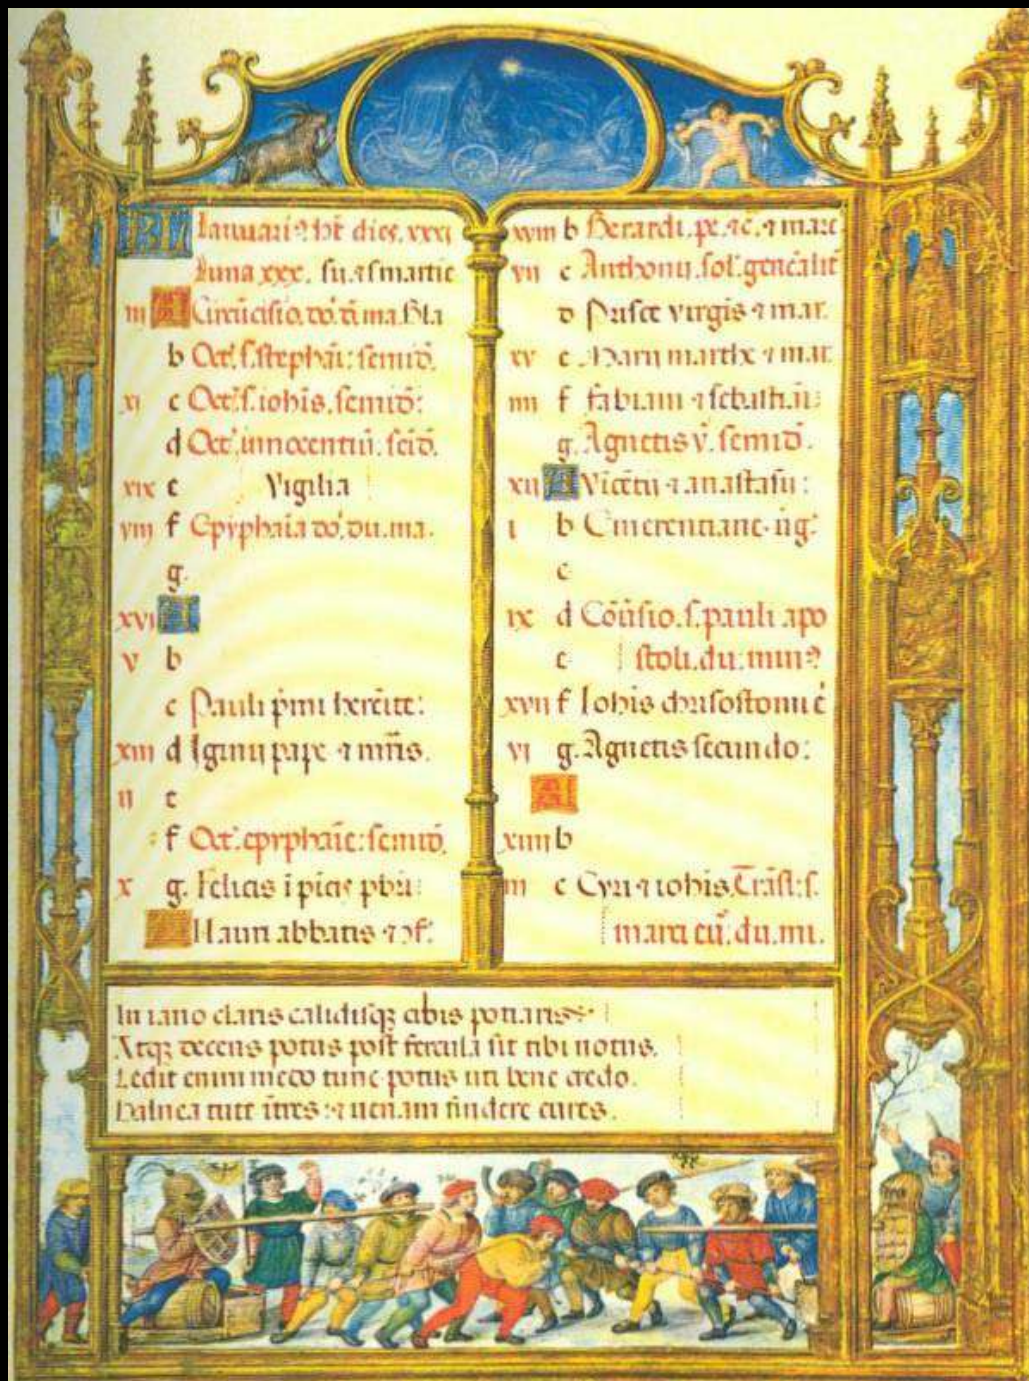 KL Ianuari9 ht dies. xxxi
Luna xxx. su.
iii A Circucisio. do.
b Oct. s. stephai: semid.
xi c Oct. s. iohis. semid:
d Oct. innocentiu: seid.
xix e Vigilia
viii f Epyphaia do. du. ma.
g.
xvi A
v b
c Pauli pmi hereite:
xiii d Iginij pape ⁊ mris.
ii e
f Oct. epyphaie: semid.
x g. Felicis i picis pbri:
A Mauri abbatis ⁊ ɔf.
xviii b Berardi. pe. ⁊c. ⁊ marc
vii c Anthonij. sol. gencalit
d Prisce virgis ⁊ mar.
xv e Marij marthe ⁊ mar.
iiii f fabiani ⁊ sebastiani:
g. Agnetis v. semid.
xii A Vicetij ⁊ anastasij:
i b Emerentiane. uig.
c
ix d Couisio. s. pauli apo
e stoli. du: min9
xvii f Iohis chrisostomi
vi g. Agnetis secundo:
A
xiiii b
iii c Cyri ⁊ iohis. Trasl: s.
marci eu. du. mi.
In iano claris calidisqꝫ cibis potiaris
Atqꝫ decens potus post fercula sit tibi notus.
Ledit enim medo tunc potus uti bene credo.
Balnea tute itres: ⁊ uenam findere cures.